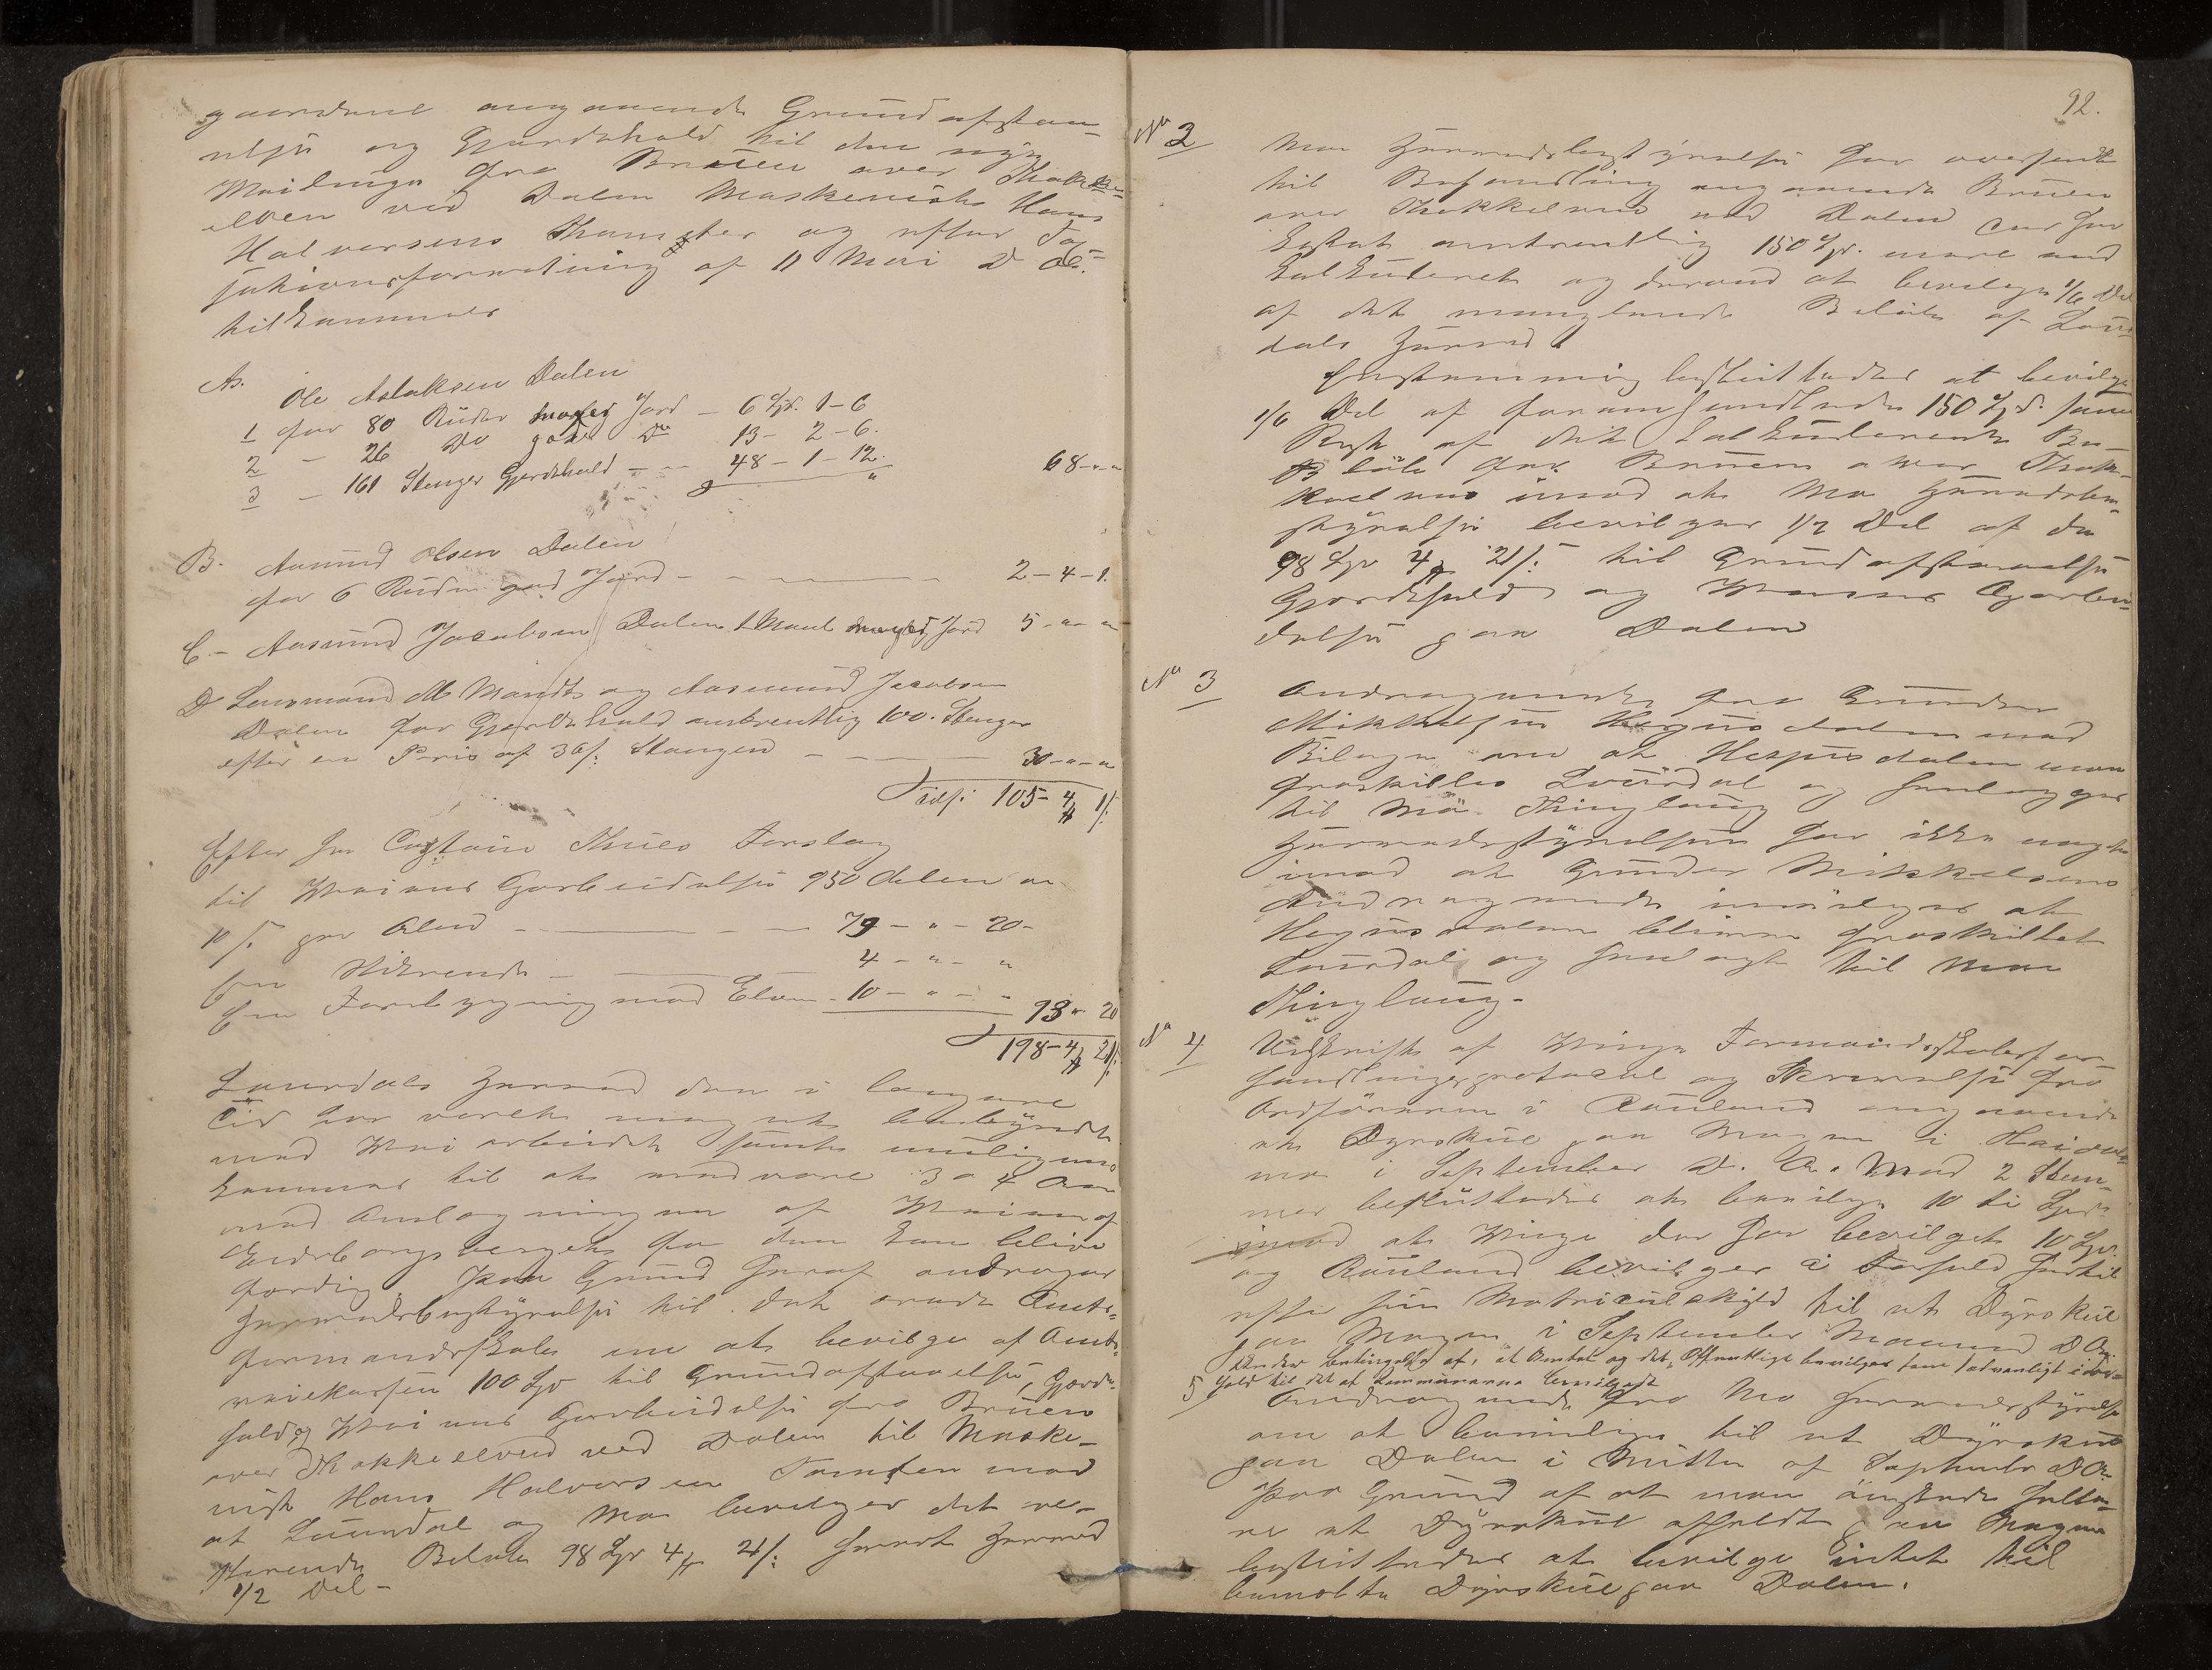 gaardene angaaende Grundafstaa-
else og Gjærdehold til den nye
Veilinge fra Bruen over Thokke-
elven ved Dalen Maskenist Hans
Halvorsens Thomter og efter Ta
jationsforretning af 11 Mai D. A.
tilkommer
A.
Ole Aslaksen Dalen
1 for 80 Ruder mager Jord - 6 Spd. 1-6
2 - 26 Do god Do 13- 2-6.
3 - 161 Stenger Gjerdehold - - 48-1-12. 68-"-"
B. Aamund Olsen Dalen
for 6 Ruder god Jord - - - 2-4-1.
C.- Aasmund Jacobsen Dalen 1 Maal maged Jord 5-"-"
D Lensmand M Mandt og Aasmund Jacobsen
Dalen for Gjerdehold omtrentlig 100. Stenger
efter en Pris af 36 s. Stangen - - - 30-"-"
Tils: 105-4 1 s.
Efter Hr Captain Thues Forslag
til Veiens Oparbeidelse 950 Alen a
10 s. per Alen - - - 79-"-20-
for Stikrende - - 4-"-"
for Forebygning mod Elven - 10-"-" 93 " 20
198-4 21 s.
Laurdals Herred der i længere
Tid har været meget bebyrdet
med Veiarbeidet samt muligens
kommer til at medvare 3 a 4 Aar
med Anlægningen af Veien af
Eidsborgsberget før den kan blive
færdig. Paa Grund heraf andrager
Herredsbestyrelse til det ærede Amts-
formandskab om at bevilge af Amts-
veiekassen 100 Spd til Grundafstaaelse, Gjerde-
hold og Veiens Oparbeidelse fra Bruen
over Thokkeelven ved Dalen til Maske-
nist Hans Halvorsen Tomten mod
at Laurdal og Mo bevilger det re-
sterende Beløb 98 Spd 4 21 s. hvert Herred
1/2 Del -
92.
No 2
Moe Herredsbestyrelse har oversendt
til Behandling angaaende Bruen
over Thokkelven ved Dalen der har
kostet omtrentlig 150 Spd. mere end
kalkuderet og derved at bevilge 1/6 Del
af det manglende Beløb af Laur-
dals Herred.
Enstemmig besluttedes at bevilge
1/6 Del af foranhandlede 150 Spd. som
Rest af det kalkulerende Be-
løb for Bruen over Thok-
kelven imod at Mo Herredsbe-
styrelse bevilger 1/2 Del af de
98 Spd 4 21 s. til Grundafstaaelse
Gjerdehold og Veiens Oparbei-
delse paa Dalen
No 3
Andragende fra Gunder
Mikkelsen Hegnsdalen med
Bilage om at Hegnsdalen maa
fraskilles Laurdal og henlægges
til Mo Thinglaug
Herredsstyrelsen har ikke noget
imod at Gunder Mikkelsens
Andragende indvilges at
Hegnsdalen blive fraskillet
Laurdal og henlagt til Moe
Thinglaug.
No 4
Udskrift af Vinje Formandskabsfor-
handlingsprotocol og Skrivelse fra
Ordføreren i Rauland angaaende
et Dyrskue paa Mogen i
i September D. A. Med 2 Stem-
mer besluttedes at bevilge 10 ti Spd
imod at Vinje der har bevilget 10 Spd.
og Rauland bevilger i Forhold hertil
efter sin Matriculskyld til et Dyrskue
paa Mogen i September Maaned D A.
Under betingelse af, at Amtet og det Offentlige bevilger som sedvanligt i for-
hold til det af kommunerne bevilgede
5 Andragende fra Mo Herredsstyrelse
om at bevilge til et Dyrskue
paa Dalen i Mitten af Septembr D A.
Paa Grund af at man ønskede helle-
re et Dyrskue afholdt paa Mogen
besluttedes at bevilge intet til
bemeldte Dyrskue paa Dalen.